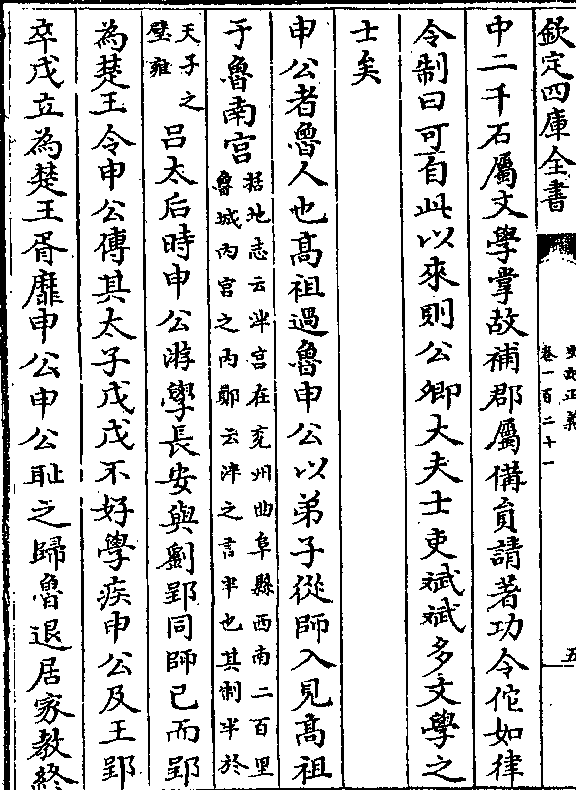 欽定四庫全書
史記正義
卷一百二十一
五
中二千石屬文學掌故補郡屬備員請著功令佗如律
令制曰可自此以來則公卿大夫士吏斌斌多文學之
士矣
申公者魯人也高祖過魯申公以弟子從師入見高祖
于魯南宮括地志云泮宮在兖州曲阜縣西南二百里
魯城内宮之内鄭云泮之言半也其制半於
天子之
璧雍
吕太后時申公游學長安與劉郢同師已而郢
為楚王令申公傅其太子戊戊不好學疾申公及王郢
卒戊立為楚王胥靡申公申公耻之歸魯退居家教終